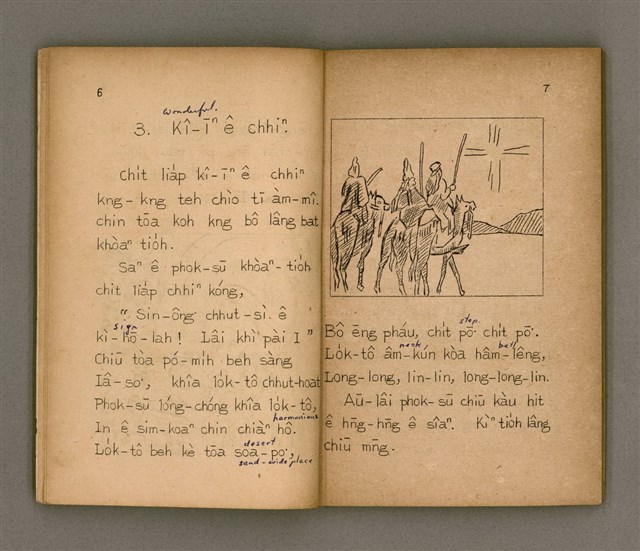 6
wonderful.
3. Kî-īⁿ ê chhiⁿ.
Chi̍t lia̍p kî-īⁿ ê chhiⁿ
kng-kng teh chiò tī àm-mî.
chin tōa koh kng bô lâng bat
khòaⁿ tio̍h.
Saⁿ ê phok-sū khòaⁿ-tio̍h
chi̍t lia̍p chhiⁿ kóng,
“ Sin-ông chhut-sì ê
sign
kì-hō-lah! Lâi khì pài I ”
Chiū tòa pó-mi̍h beh sàng
Iâ-so͘, khîa lo̍k-tô chhut-hoat
Phok-sū lóng-chóng khîa lo̍k-tô,
harmonious
In ê sim-koaⁿ chin chiàⁿ hô.
desert
Lo̍k-tô beh kè tōa soa-po͘,
sand-wide place
7
step.
Bô êng pháu, chi̍t pō͘ chi̍t pō͘.
neck bell
Lo̍k-tô âm-kún kòa hâm-lêng,
Long-long, lin-lin, long-long-lin.
Aū-lâi phok-sū chiū kàu hit
ê hn̄g-hn̄g ê siâⁿ. Kìⁿ tio̍h lâng
chiū mn̄g.